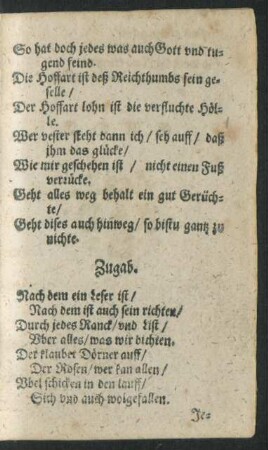 So hat doch jedes was auch Gott vnd tu-
gend feind.
Die Hoffart ist deß Reichthumbs sein ge-
selle /
Der Hoffart lohn ist die verfluchte Höl-
le.
Wer vester steht dann ich / seh auff / daß
jhm das glücke /
Wie mir geschehen ist / nicht einen Fuß
verrücke.
Geht alles weg behalt ein gut Gerüch-
te /
Geht dises auch hinweg / so bistu gantz zu
nichte.
Zugab.
Nach dem ein Leser ist /
Nach dem ist auch sein richten /
Durch jedes Ranck / vnd List /
Vber alles / was wir dichten.
Der klaubet Dörner auff /
Der Rosen / wer kan allen /
Vbel schicken in den lauff /
Sich vnd auch wolgefallen.
Je-